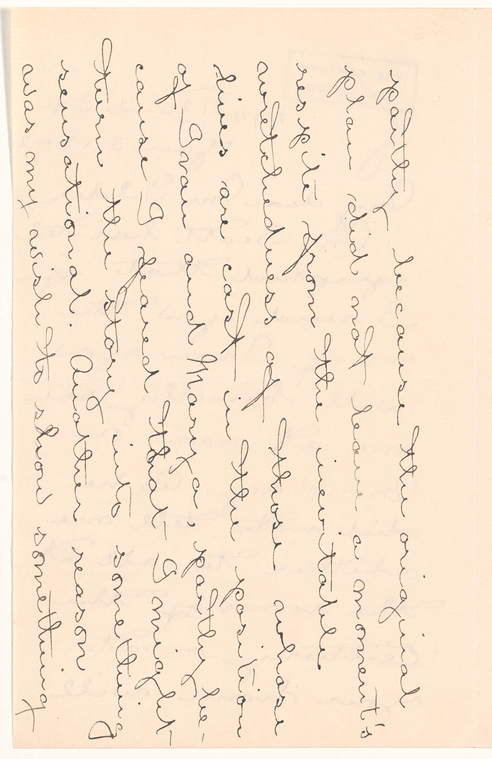 partly because the original
plan did not leave a moment's
respite from the inevitable
wretchedness of those whose
lives are cast in the position
of Ivan and Marya, partly be-
cause I feared that I might
turn the story into something
sensational. Another reason
was my wish to show something